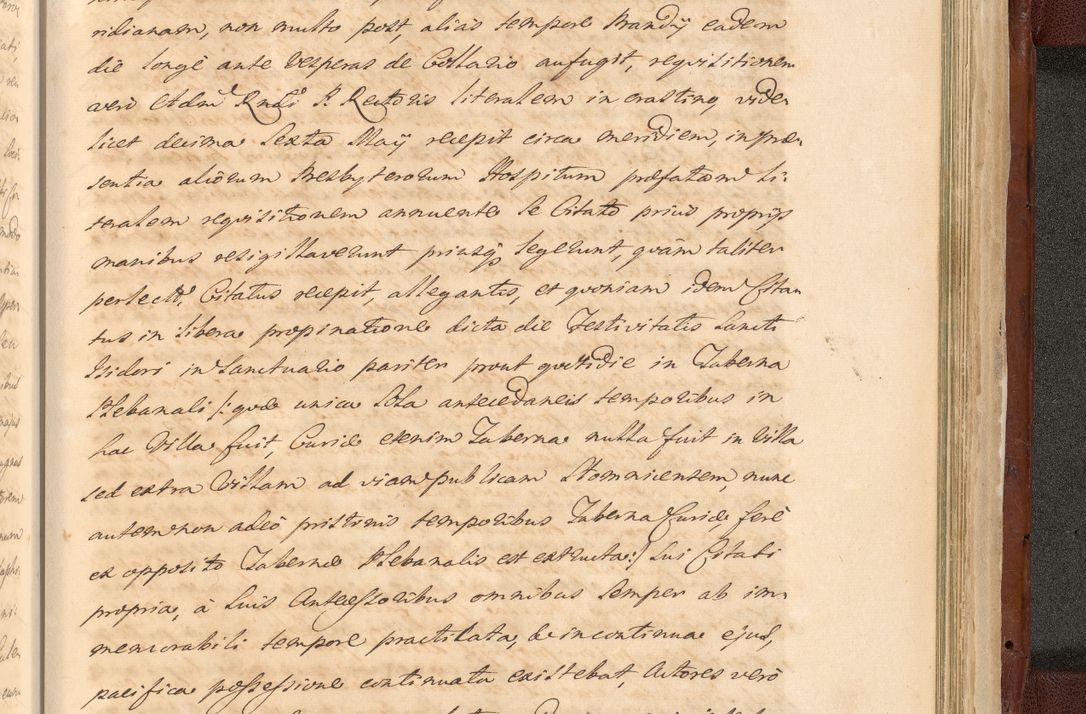 ridianam, non multo post, alias tempore Prandij eadem
die longè ante Vesperas de Collatio aufugit, requisitionem
verò Adm Rndi P. Rectoris literalem in crastinq vide-
licet decima Sexta Maij recepit circa meridiem, in præ-
sentia aliorum Presbyterorum Hospitum præfatam li-
teralem requisitionem annuente se Citato prius propriis
manibus resigillaverunt priusq legerunt, quàm taliter
perlectã Citatus recepit, allegantes, et quoniam idem Cita-
tus in libera propinatione dicta die Festivitatis Sancti
Isidori in Sanctuario pariter prout quotidie in Taberna
Plebanali /: quæ unica sola antecedaneis temporibus in
hac Villa fuit, Curiæ etenim Taberna nulla fuit in Villa
sed extra Villam ad viam publicam Stomnicensem, nunc
autem non adeò pristinis temporibus Taberna Curiæ ferè
ex opposito Tabernæ Plebanalis est extructa :/ sui Citati
propria, à suis Antecessoribus omnibus semper ab im-
memorabili tempore practicata, &c in continua ejus,
pacifica possessione continuata existebat, Actores verò